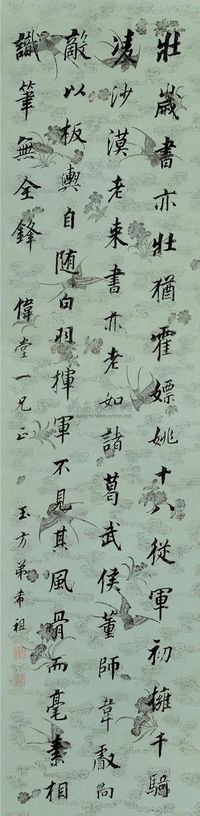 壯歲書亦壯猶霍嫖姚十八從軍初擁千騎
凌沙漠老來書亦老如諸葛武侯董師韋叡向
敵以板輿自隨白羽揮軍不見其風骨而毫素相
識筆無全鋒
偉堂一兄正
玉方弟希祖